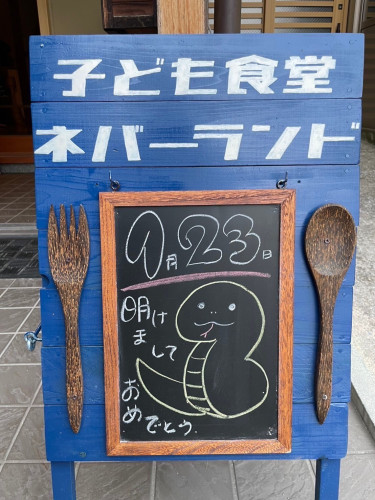 子ども食堂
ネバーランド
1月23日
明け
まし
て
おめ
でとう